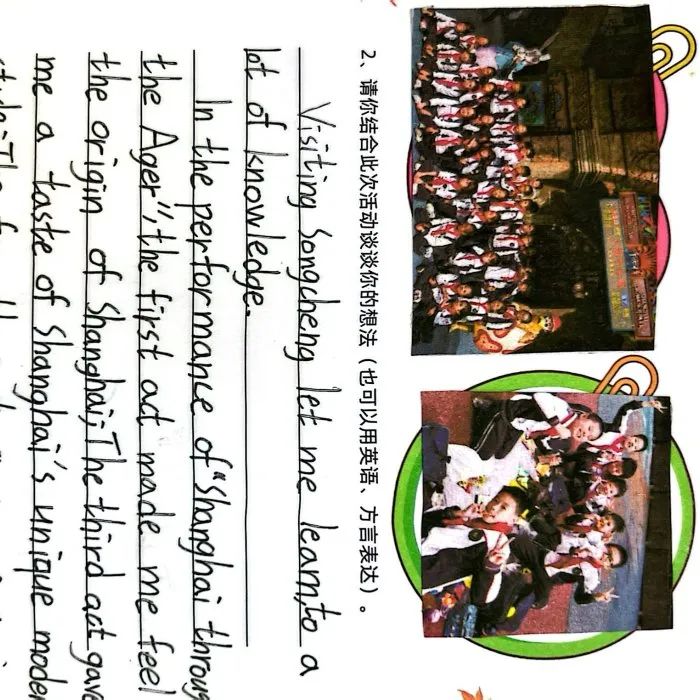 2、请你结合此次活动谈谈你的想法（也可以用英语、方言表达）。
Visiting Songcheng let me learn,to a
lot of knowledge.
In the performance of "Shanghai throug
the Ager", the first act made me feel
the origin of Shanghai; The third act gave
me a taste of Shanghai's unique moder